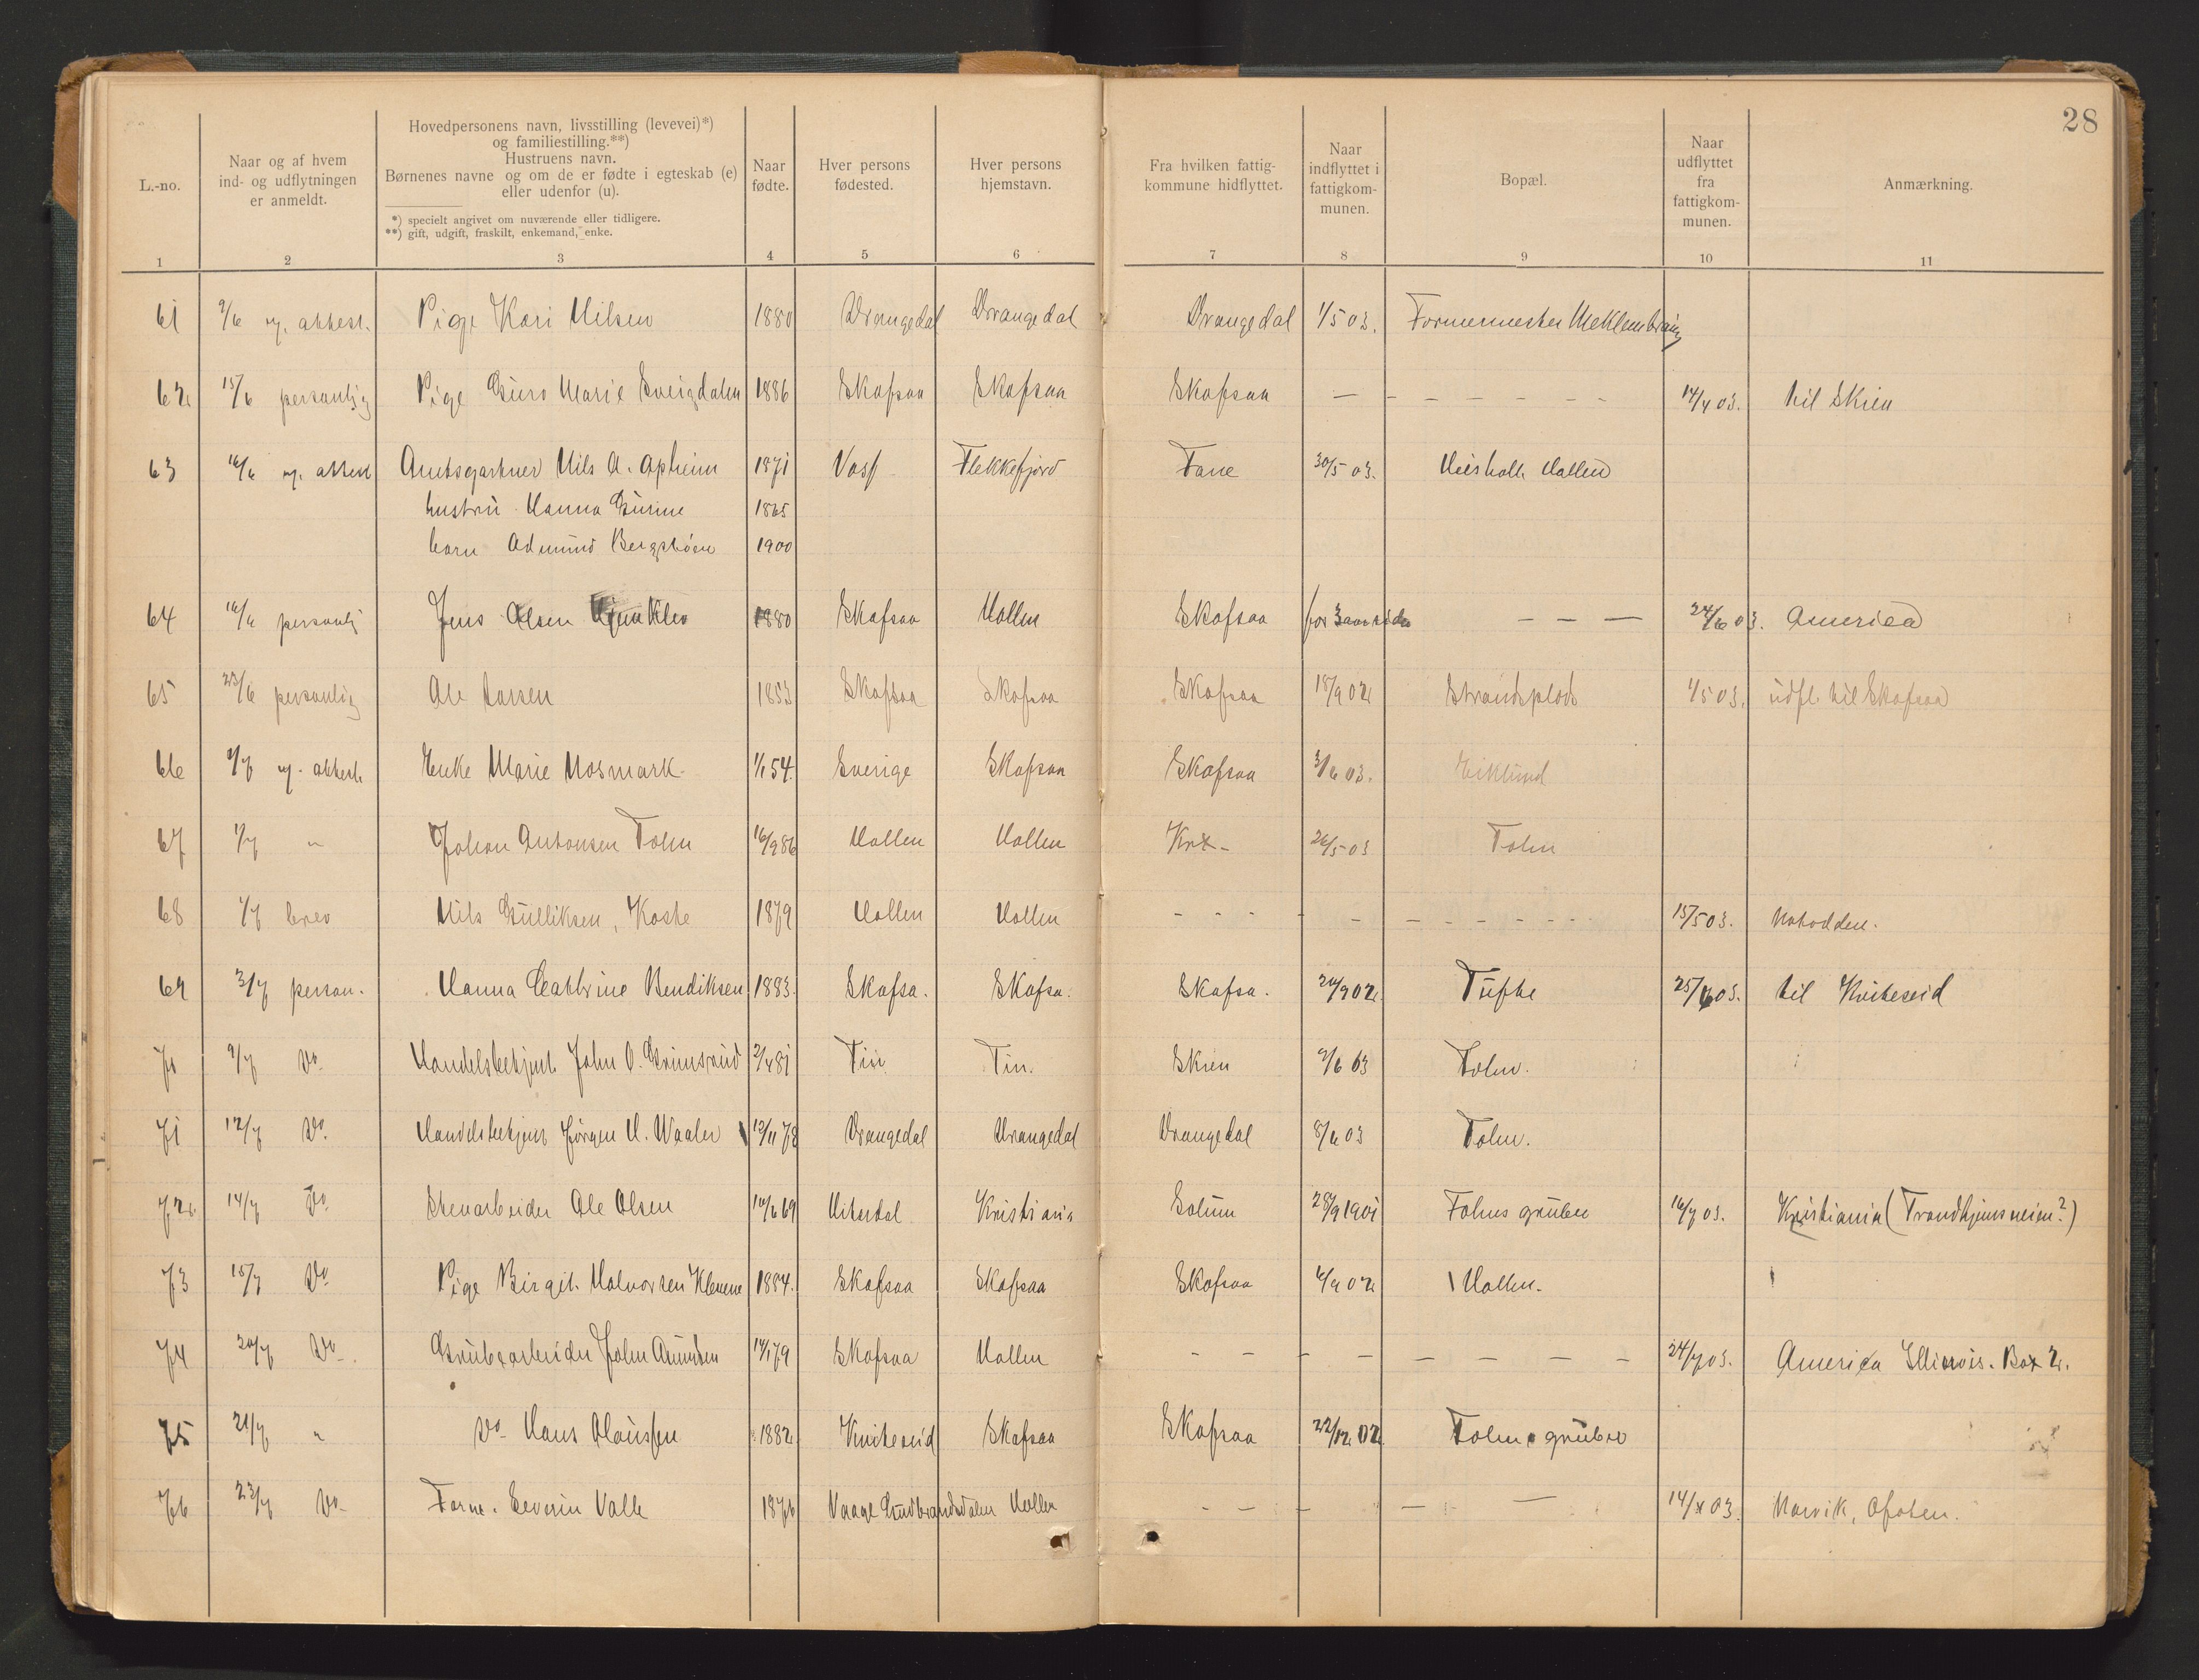 28
L.-no.
Naar og af hvem
ind- og udflytningen
er anmeldt.
Hovedpersonens navn, livsstilling (levevei)*)
og familiestilling.**)
Hustruens navn.
Børnenes navne og om de er fødte i egteskab (e)
eller udenfor (u).
*) specielt angivet om nuværende eller tidligere.
**) gift, udgift, fraskilt, enkemand, enke.
Naar
fødte.
Hver persons
fødested.
Hver persons
hjemstavn.
Fra hvilken fattig-
kommune hidflyttet.
Naar
indflyttet i
fattigkom-
munen.
Bopæl.
Naar
udflyttet
fra
fattigkom-
munen.
Anmærkning.
1 2 3 4 5 6 7 8 9 10 11
61 9/6 m. attest. Pige Kari Nilsen 1880 Drangedal Drangedal Drangedal 1/5 03. Formermester
62 15/6 personlig Pige Guro Marie 1886 Skafsaa Skafsaa Skafsaa — - - - - - - 14/4 03. til Skien
63 16/6 m. attest Amtsgartner Nils A. Opheim 1871 Voss Flekkefjord Fane 30/5 03. Hollen
hustru Hanna Gurine 1865
barn Admund 1900
64 16/6 personlig Jens Olsen 1880 Skafsaa Hollen Skafsaa for 3 aar siden - - — 24/6 03. America
65 23/6 personlig Ole Larsen 1853 Skafsaa Skafsaa Skafsaa 18/9 02 Strandsplads 1/5 03. udfl. til Skafsaa
66 1/7 m. attest Enke Marie Mosmark 1/1 54. Sverige Skafsaa Skafsaa 3/6 03. Eiklund
67 1/7 " Johan Antonsen Tolnes 16/9 86 Hollen Hollen 26/5 03
68 1/7 brev Nils Gulliksen, Kaste 1879 Hollen Hollen - - - - - - - - - - - 15/5 03. Notodden.
69 3/7 person. Hanna Cathrine Bendiksen 1883. Skafsa. Skafsa. Skafsa. 24/9 02. Tufte 25/6 03. til Kviteseid
70 9/7 Do. Handelsbetjent John O. Grimsrud 2/4 81 Tin Tin. Skien 2/6 03
71 12/7 Do. Handelsbetjent Jørgen N. Waaler 12/11 78 Drangedal Drangedal Drangedal 8/6 03
72. 14/7 Do Stenarbeider Ole Olsen 10/6 69 Kristiania Solum 28/9 1901 gruber 16/7 03. Kristiania (Trondhjemsveien?)
73 15/7 Do Pige Birgit Halvorsen 1884. Skafsaa Skafsaa Skafsaa 4/9 02 Hollen.
74 20/7 Do Grubearbeider John Amundsen 14/1 79 Skafsaa Hollen - - - - - - - - - 24/7 03. America Illinois. Box 2.
75 21/7 " Do Hans Olaussen 1882 Kviteseid Skafsaa Skafsaa 22/12 02 gruber
76 23/7 Do Form. Severin Valle 1876 Vaage Gudbrandsdalen Hollen - - - - - — 14/8 03. Narvik, Ofoten.